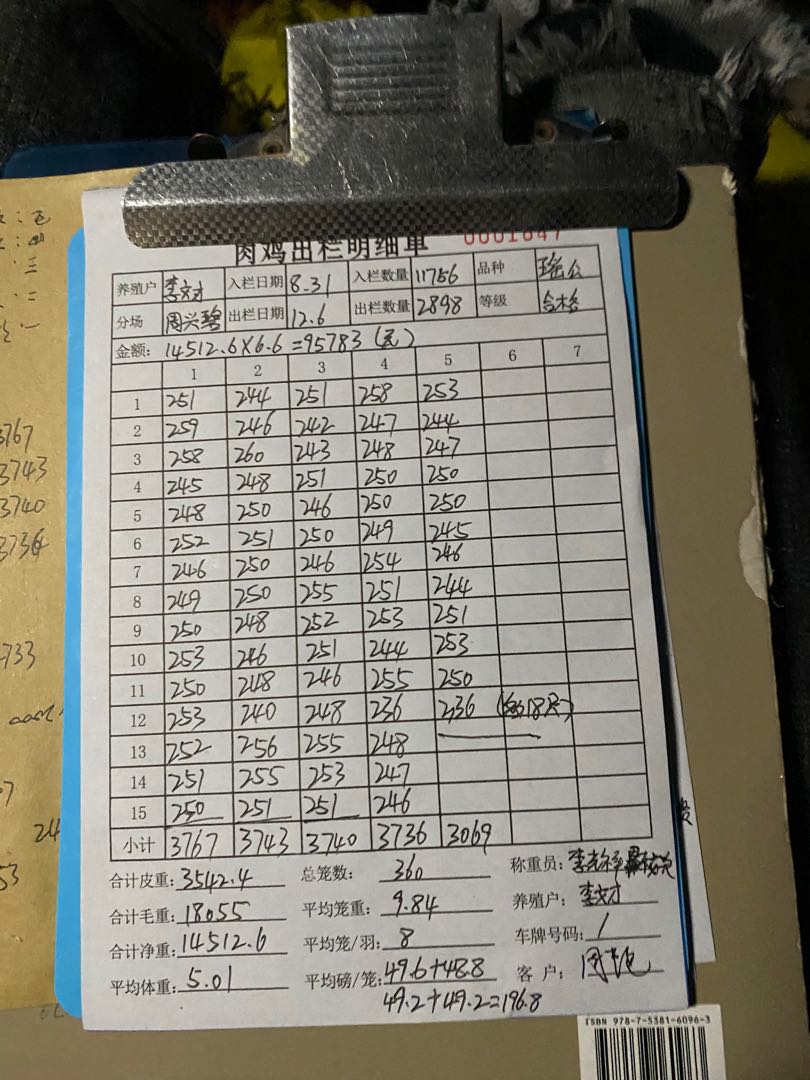 肉鸡出栏明细单 0001847
养殖户 李文才 入栏日期 8.31 入栏数量 11756 品种 瑶公
分场 周兴碧 出栏日期 12.6 出栏数量 2898 等级 合格
金额: 14512.6×6.6=95783(元)
1 2 3 4 5 6 7
1 251 244 251 258 253
2 259 246 242 247 244
3 258 260 243 248 247
4 245 248 251 250 250
5 248 250 246 250 250
6 252 251 250 249 245
7 246 250 246 254 246
8 249 250 255 251 244
9 250 248 252 253 251
10 253 246 251 244 253
11 250 248 246 255 250
12 253 240 248 236 236
13 252 256 255 248
14 251 255 253 247
15 250 251 251 246
小计 3767 3743 3740 3736 3069
合计皮重: 3542.4 总笼数: 360 称重员:
合计毛重: 18055 平均笼重: 9.84 养殖户: 李文才
合计净重: 14512.6 平均笼/羽: 8 车牌号码: 1
平均体重: 5.01 平均磅/笼: 49.6+48.8 客户:
49.2+49.2=196.8
ISBN 978-7-5381-6096-3
3767
3743
3740
3736